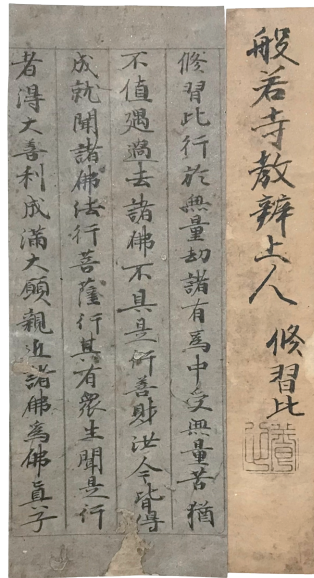 般若寺教辨上人 修習此
修習此行於無量劫諸有為中受無量苦猶
不值遇過去諸佛不具是行善財汝今皆得
成就聞諸佛法行菩薩行其有衆生聞是行
者得大善利成滿大願親近諸佛為佛真子